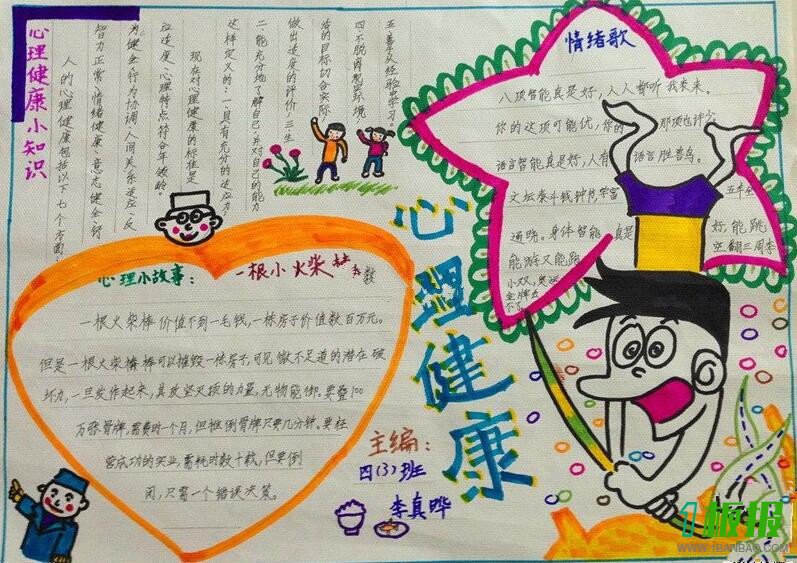 心理健康小知识
人的心理健康包括以下七个方面：
智力正常、情绪健康、意志健全、行
为健全、行为协调、人间关系适应、反
应适度、心理特点符合年龄。
现在对心理健康的标准是
这样定义的：一、具有充分的适应力，
二、能充分地了解自己，并对自己的能力
做出适度的评价，三、生
活的目标切合实际，
四、不脱离现实环境，
五、善于从经验中学习。
情绪歌
八项智能真是好，人人都听我表来。
你的这项可能优，你的 那项也许少
语言智能真是好，人有 语言胜兽鸟。
文坛泰斗钱钟书，学富 五车
通晓。身体智能 真是 好，能跳
能游又能跑 空翻三周李
小双，奥运
金牌
心理健康
心理小故事：
一根小火柴
数
一根火柴棒价值不到一毛钱，一栋房子价值数百万元。
但是一根火柴棒棒可以摧毁一栋房子，可见微不足道的潜在破
坏力，一旦发作起来，其攻坚灭顶的力量，无物能御。要叠100
万张骨牌，需费时一个月，但推倒骨牌只要几分钟。要经
营成功的实业，需耗时数十载，但要倒
闭，只需一个错误决策。
主编：
四(3)班
李真晔
1板报
WWW.1BANBAO.COM